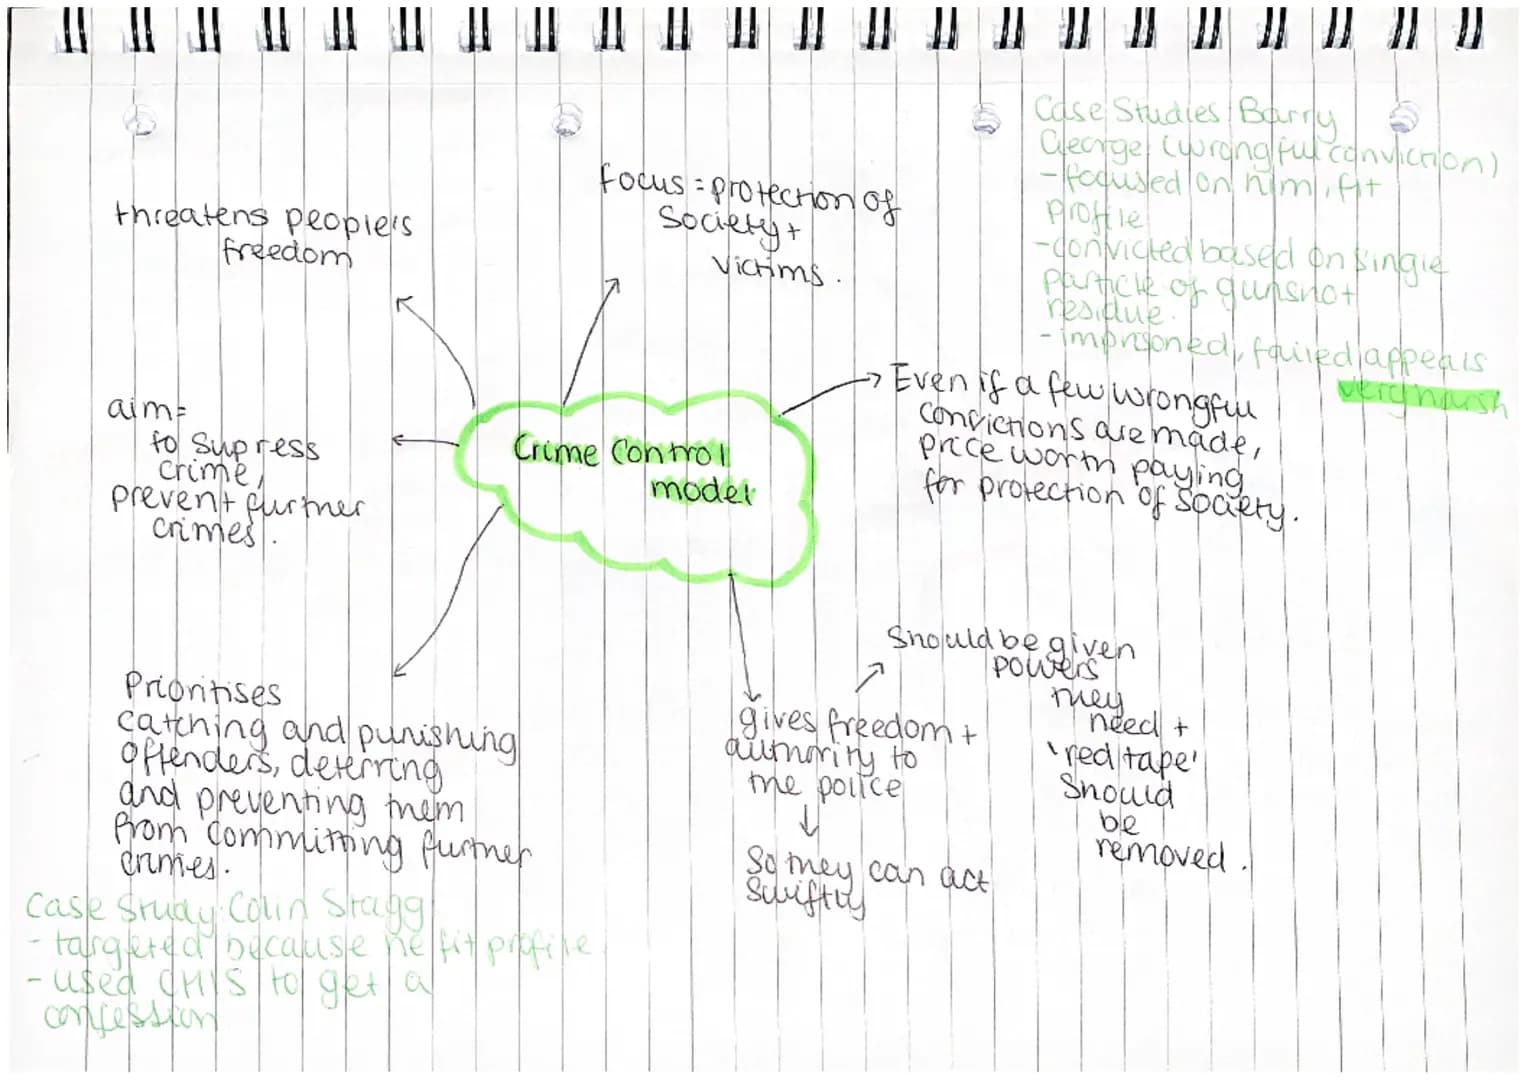 Case Studies: Barry
George (wrongful conviction)
- focused on him, fit
profile
- convicted based on single
particle of gunshot
residue.
- imprisoned, failed appeals
very harsh
focus = protection of
Society +
Victims.
threatens people's
freedom
Crime Control
model
→ Even if a few wrongful
convictions are made,
price worth paying
for protection of society.
aim=
to supress
crime,
prevent further
crimes.
Prioritises
catching and punishing
offenders, deterring
and preventing them
from committing further
crimes.
gives freedom +
authority to
the police
↓
So they can act
swiftly
Should be given
powers
they
need +
'red tape'
Should
be
removed.
Case Study: Colin Stagg
- targeted because he fit profile.
- used CHIS to get a
confession